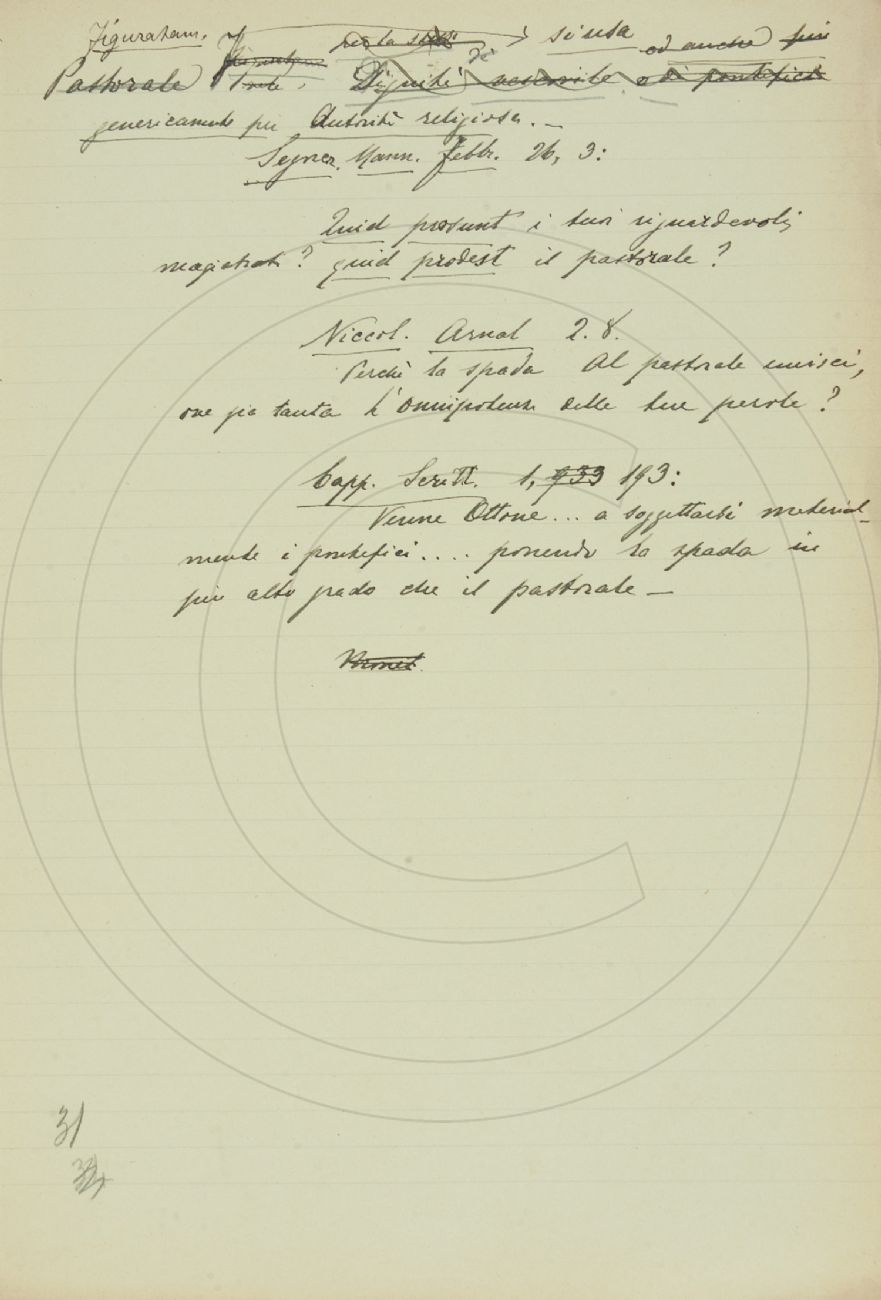 Figuratam. per la si usa od anche più
Pastorale Dignità di vescovile o di pontefice
genericamente per Autorità religiosa. —
Segner. Mann. febbr. 26, 3:
Quid prosunt i tuoi riguardevoli
magistrati? quid prodest il pastorale?
Niccol. Arnal 2. 8.
Perchè la spada Al pastorale unisci,
ove più tanta L'Onnipotenza delle tue parole?
Capp. Scritt. 1, 933 193:
Venne Ottone... a soggettarsi material-
mente i pontefici.... ponendo la spada in
più alto grado che il pastorale —
31